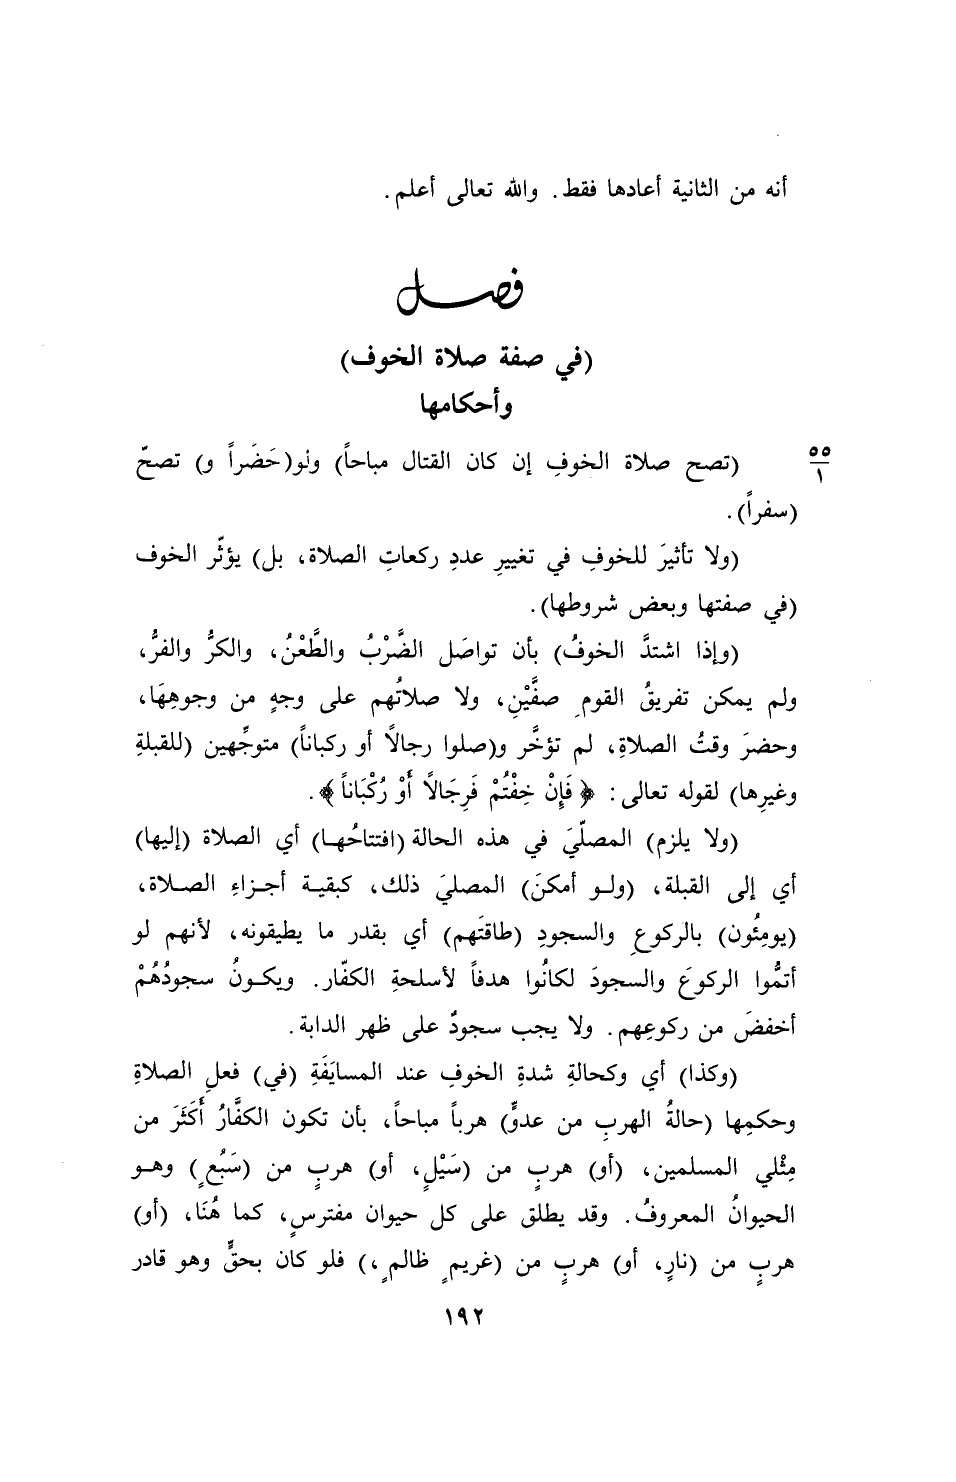 أنه من الثانية أعادها فقط. والله تعالى أعلم.
فصل
(في صفة صلاة الخوف)
وأحكامها
٥٥
١
(تصح صلاة الخوفِ إن كان القتال مباحاً) ولو(حَضَراً و) تصحّ
(سفراً).
(ولا تأثيرَ للخوفِ في تغييرِ عددِ ركعاتِ الصلاة، بل) يؤثّر الخوف
(في صفتها وبعض شروطها).
(وإذا اشتدَّ الخوفُ) بأن تواصَل الضَّرْبُ والطَّعْنُ، والكرُّ والفرُّ،
ولم يمكن تفريقُ القومِ صفَّيْنِ، ولا صلاتُهم على وجهٍ من وجوهِهَا،
وحضرَ وقتُ الصلاةِ، لم تؤخَّر و(صلوا رجالًا أو ركباناً) متوجِّهين (للقبلةِ
وغيرِها) لقوله تعالى: ﴿فَإِنْ خِفْتُمْ فَرِجَالًا أَوْ رُكْبَاناً﴾.
(ولا يلزم) المصلّيَ في هذه الحالة (افتتاحُها) أي الصلاة (إليها)
أي إلى القبلة، (ولو أمكنَ) المصليَ ذلك، كبقية أجزاءِ الصلاة،
(يومِئُون) بالركوعِ والسجودِ (طاقتَهم) أي بقدر ما يطيقونه، لأنهم لو
أتمُّوا الركوعَ والسجودَ لكانُوا هدفاً لأسلحةِ الكفّار. ويكونُ سجودُهُمْ
أخفضَ من ركوعِهم. ولا يجب سجودٌ على ظهر الدابة.
(وكذا) أي وكحالةِ شدةِ الخوفِ عند المسايَفَةِ (في) فعلِ الصلاةِ
وحكمِها (حالةُ الهربِ من عدوٍّ) هرباً مباحاً، بأن تكون الكفَّارُ أَكَثَرَ من
مِثْلي المسلمين، (أو) هربٍ من (سَيْلٍ، أو) هربٍ من (سَبُعٍ) وهو
الحيوانُ المعروفُ. وقد يطلق على كل حيوان مفترسٍ، كما هُنَا، (أو)
هربٍ من (نارٍ، أو) هربٍ من (غريمٍ ظالمٍ،) فلو كان بحقٍّ وهو قادر
١٩٢